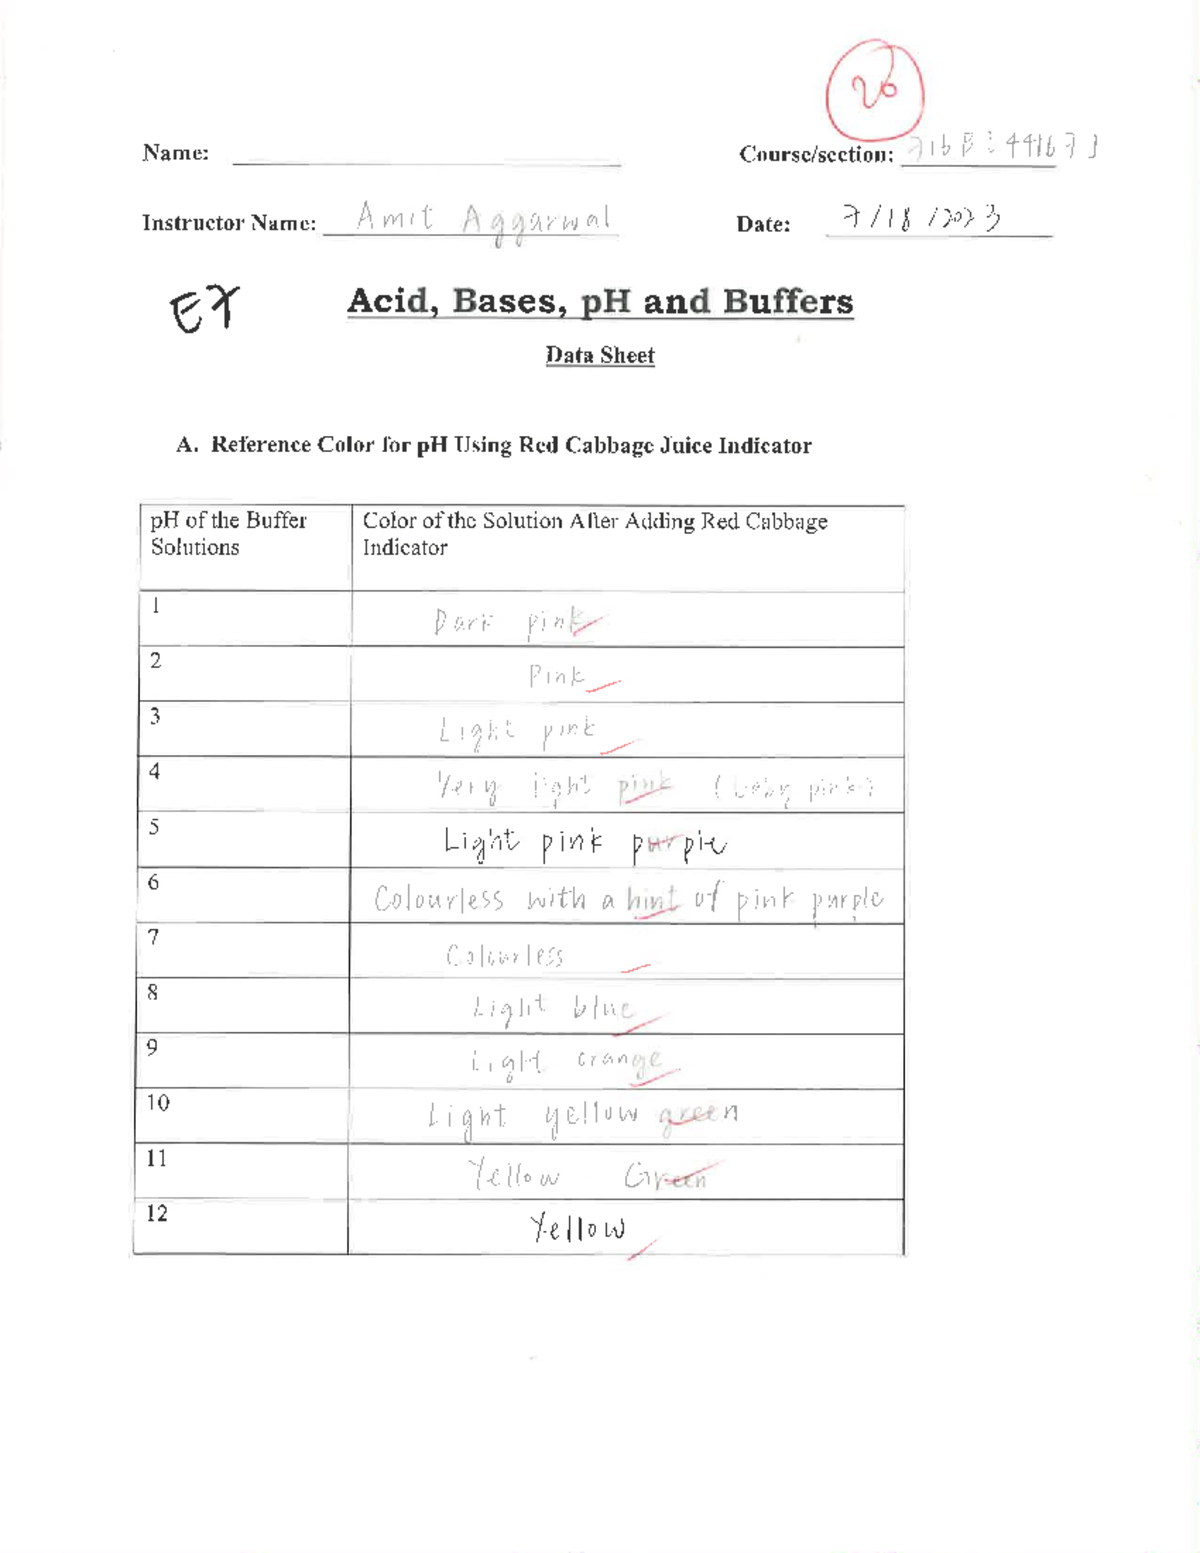 20
Name:
Course/section:
Instructor Name: Amit Aggarwal
Date: 7/18/2023
E7
Acid, Bases, pH and Buffers
Data Sheet
A. Reference Color for pH Using Red Cabbage Juice Indicator
pH of the Buffer Solutions
Color of the Solution After Adding Red Cabbage Indicator
1 Dark pink
2 Pink
3 Light pink
4 Very light pink (baby pink)
5 Light pink purple
6 Colourless with a hint of pink purple
7 Colourless
8 Light blue
9 Light orange
10 Light yellow green
11 Yellow Green
12 Yellow